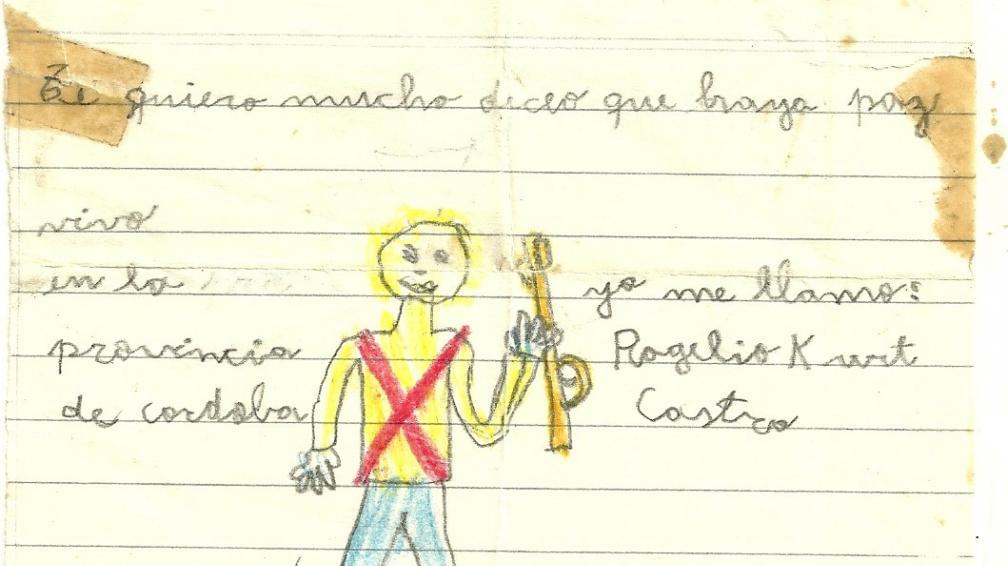 Te quiero mucho deceo que haya paz
vivo
en la
provincia
de cordoba
yo me llamo:
Rogelio Kurt
Castro